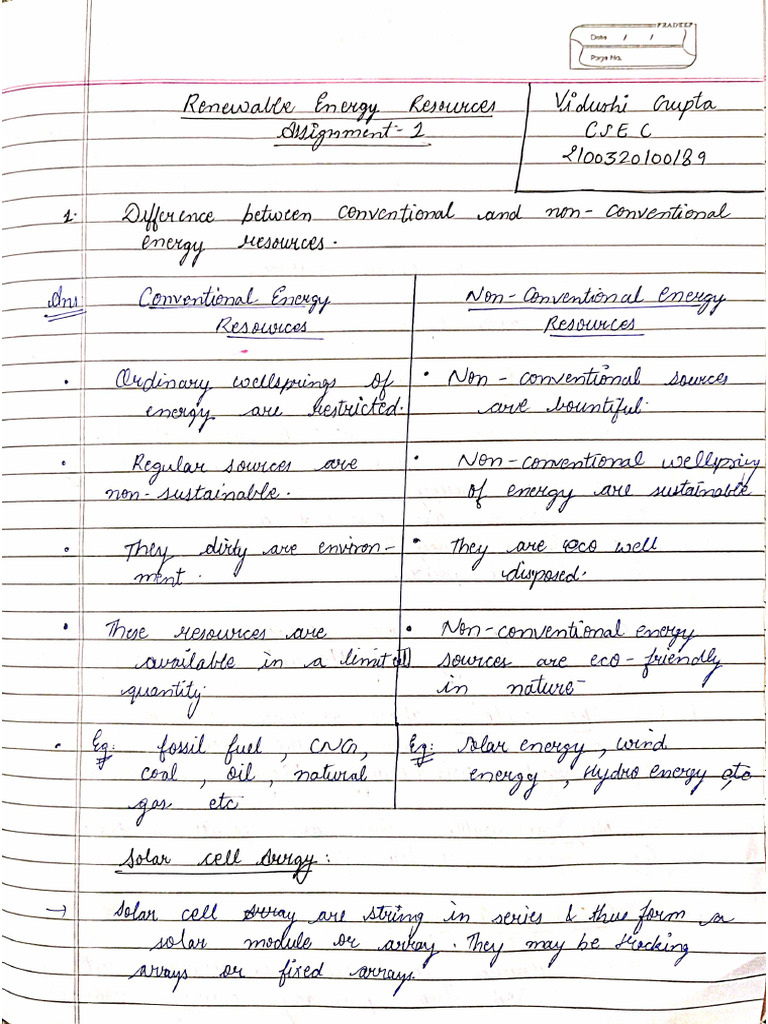 PRADEEP
Date / /
Page No.
Renewable Energy Resources
Assignment-1
Vidushi Gupta
CSE C
2100320100189
1. Difference between conventional and non-conventional
energy resources.
Ans
Conventional Energy
Resources
Non-Conventional energy
Resources
• Ordinary wellsprings of
energy are restricted.
• Non-conventional sources
are bountiful.
• Regular sources are
non-sustainable.
• Non-conventional wellspring
of energy are sustainable
• They dirty are environ-
ment.
• They are eco well
disposed.
• These resources are
available in a limited
quantity.
• Non-conventional energy
sources are eco-friendly
in nature
• Eg: fossil fuel, CNG,
coal, oil, natural
gas etc
Eg: Solar energy, wind
energy, Hydro energy etc
Solar cell Arrgy:
→ Solar cell array are string in series & thus form a
solar module or array. They may be tracking
arrays or fixed arrays.